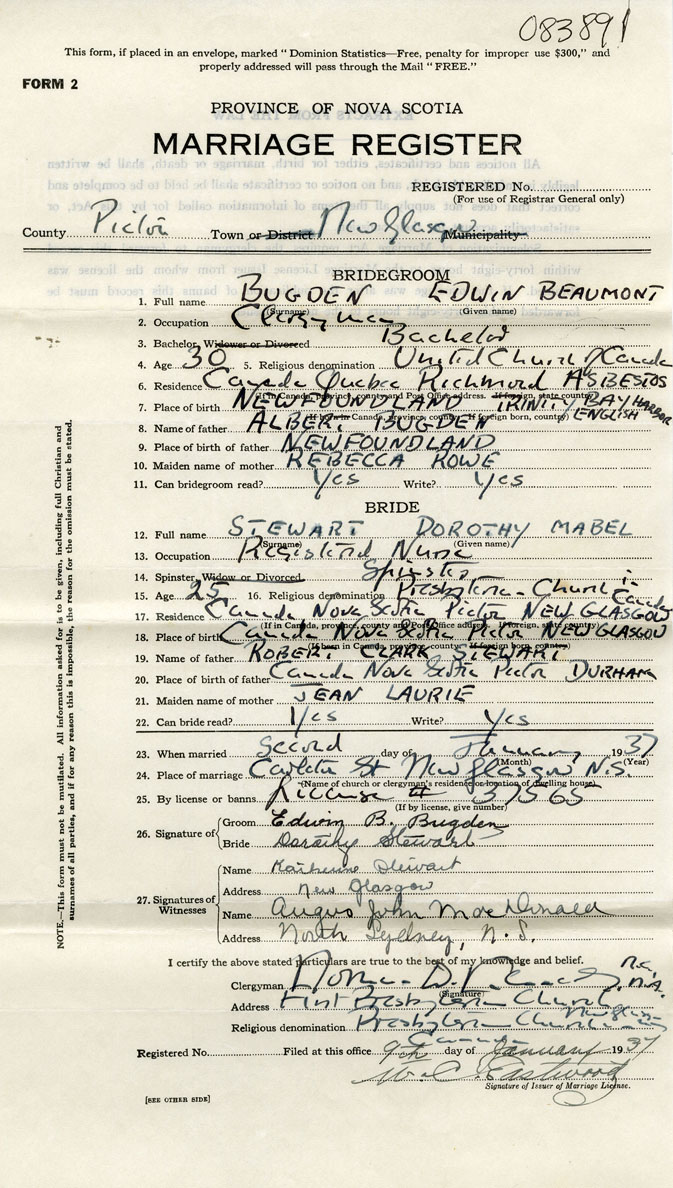 083891
This form, if placed in an envelope, marked "Dominion Statistics—Free, penalty for improper use $300," and
properly addressed will pass through the Mail "FREE."
FORM 2
PROVINCE OF NOVA SCOTIA
MARRIAGE REGISTER
REGISTERED No.
(For use of Registrar General only)
County Pictou Town or District New Glasgow Municipality
BRIDEGROOM
1. Full name BUGDEN EDWIN BEAUMONT
(Surname) (Given name)
2. Occupation Clergyman
3. Bachelor Widower or Divorced Bachelor
4. Age 30 5. Religious denomination United Church of Canada
6. Residence Canada Quebec Richmond ASBESTOS
(If in Canada, province, county and Post Office address. If foreign, state country)
7. Place of birth NEWFOUNDLAND TRINITY BAY ENGLISH HARBOR
(If born in Canada, province, county. If foreign born, country)
8. Name of father ALBERT BUGDEN
9. Place of birth of father NEWFOUNDLAND
10. Maiden name of mother REBECCA ROWE
11. Can bridegroom read? Yes Write? Yes
BRIDE
12. Full name STEWART DOROTHY MABEL
(Surname) (Given name)
13. Occupation Registered Nurse
14. Spinster Widow or Divorced Spinster
15. Age 25 16. Religious denomination Presbyterian Church in Canada
17. Residence Canada Nova Scotia Pictou NEW GLASGOW
(If in Canada, province, county and Post Office address. If foreign, state country)
18. Place of birth Canada Nova Scotia Pictou NEW GLASGOW
(If born in Canada, province, county. If foreign born, country)
19. Name of father ROBERT CLARK STEWART
20. Place of birth of father Canada Nova Scotia Pictou DURHAM
21. Maiden name of mother JEAN LAURIE
22. Can bride read? Yes Write? Yes
23. When married Second day of January 1937
(Month) (Year)
24. Place of marriage Carleton St New Glasgow N.S.
(Name of church or clergyman's residence or location of dwelling house)
25. By license or banns License # 37565
(If by license, give number)
26. Signature of
Groom Edwin B. Bugden
Bride Dorothy Stewart
27. Signatures of Witnesses
Name Katherine Stewart
Address New Glasgow
Name Angus John MacDonald
Address North Sydney, N.S.
I certify the above stated particulars are true to the best of my knowledge and belief.
Clergyman
(Signature)
Address First Presbyterian Church New Glasgow
Religious denomination Presbyterian Church in Canada
Registered No. Filed at this office 9th day of January 1937
W. C. Eastwood
Signature of Issuer of Marriage License.
[SEE OTHER SIDE]
NOTE.—This form must not be mutilated. All information asked for is to be given, including full Christian and
surnames of all parties, and if for any reason this is impossible, the reason for the omission must be stated.